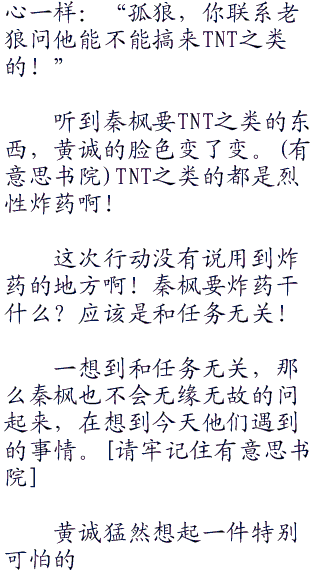 心一样：“孤狼，你联系老
狼问他能不能搞来TNT之类
的！”
听到秦枫要TNT之类的东
西，黄诚的脸色变了变。(有
意思书院)TNT之类的都是烈
性炸药啊！
这次行动没有说用到炸
药的地方啊！秦枫要炸药干
什么？应该是和任务无关！
一想到和任务无关，那
么秦枫也不会无缘无故的问
起来，在想到今天他们遇到
的事情。[请牢记住有意思书
院]
黄诚猛然想起一件特别
可怕的